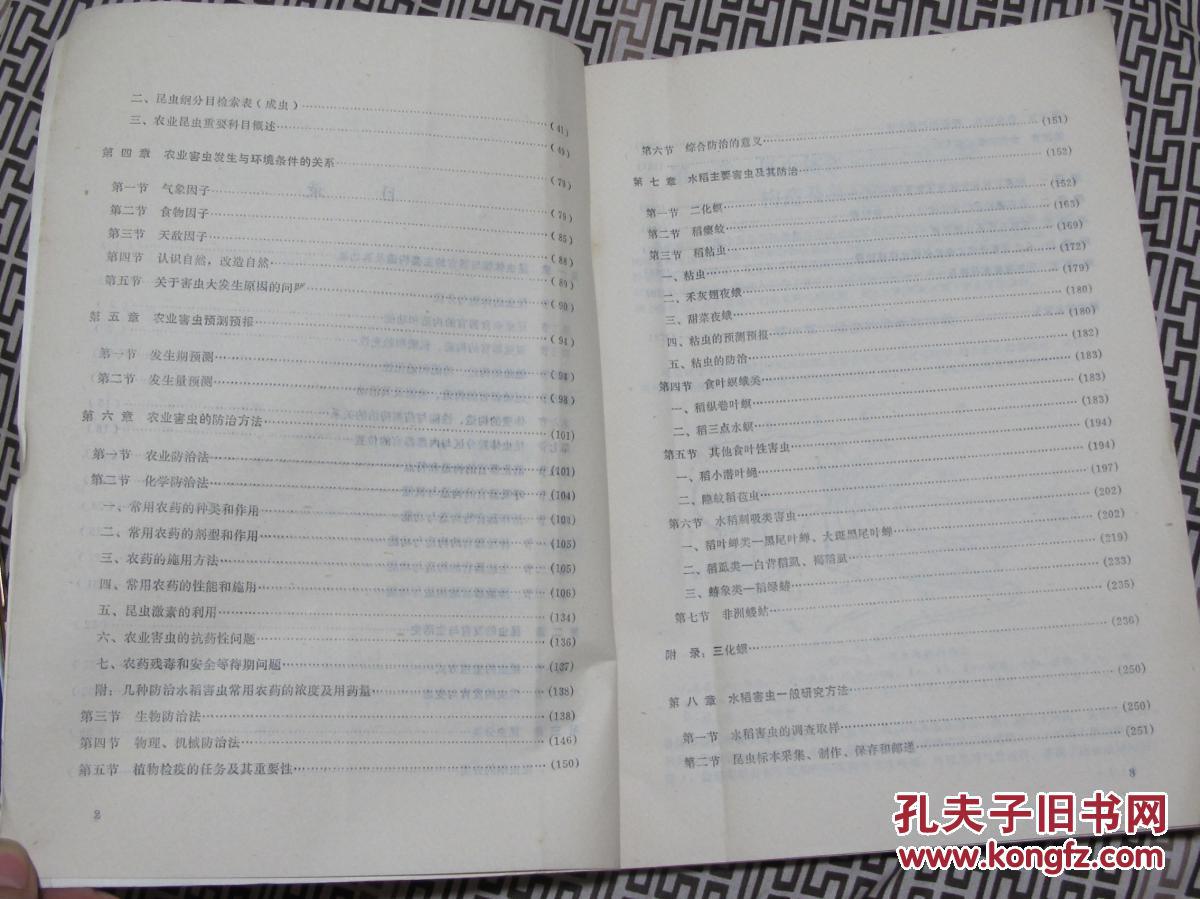 二、昆虫纲分目检索表(成虫)……(41)
三、农业昆虫重要科目概述……(49)
第四章 农业害虫发生与环境条件的关系……(79)
第一节 气象因子……(79)
第二节 食物因子……(85)
第三节 天敌因子……(88)
第四节 认识自然,改造自然……(89)
第五节 关于害虫大发生原因的问题……(90)
第五章 农业害虫预测预报……(94)
第一节 发生期预测……(94)
第二节 发生量预测……(98)
第六章 农业害虫的防治方法……(101)
第一节 农业防治法……(101)
第二节 化学防治法……(104)
一、常用农药的种类和作用……
二、常用农药的剂型和作用……(105)
三、农药的施用方法……(105)
四、常用农药的性能和施用……(106)
五、昆虫激素的利用……(134)
六、农业害虫的抗药性问题……(136)
七、农药残毒和安全等待期问题……(137)
附:几种防治水稻害虫常用农药的浓度及用药量……(138)
第三节 生物防治法……(138)
第四节 物理、机械防治法……(146)
第五节 植物检疫的任务及其重要性……(150)
2
第六节 综合防治的意义……(151)
第七章 水稻主要害虫及其防治……(152)
第一节 二化螟……(152)
第二节 稻瘿蚊……(163)
第三节 稻粘虫……(169)
一、粘虫……(172)
二、禾灰翅夜蛾……(179)
三、甜菜夜蛾……(180)
四、粘虫的预测预报……(180)
五、粘虫的防治……(182)
第四节 食叶螟蛾类……(183)
一、稻纵卷叶螟……(183)
二、稻三点水螟……(183)
第五节 其他食叶性害虫……(194)
一、稻小潜叶蝇……(194)
二、隐蚊稻苞虫……(197)
第六节 水稻刺吸类害虫……(202)
一、稻叶蝉类—黑尾叶蝉、大斑黑尾叶蝉……(202)
二、稻虱类—白背稻虱、褐稻虱……(219)
三、蝽象类—稻绿蝽……(233)
第七节 非洲蝼蛄……(235)
附录:三化螟……(236)
第八章 水稻害虫一般研究方法……(250)
第一节 水稻害虫的调查取样……(250)
第二节 昆虫标本采集、制作、保存和邮递……(251)
3
孔夫子旧书网
www.kongfz.com